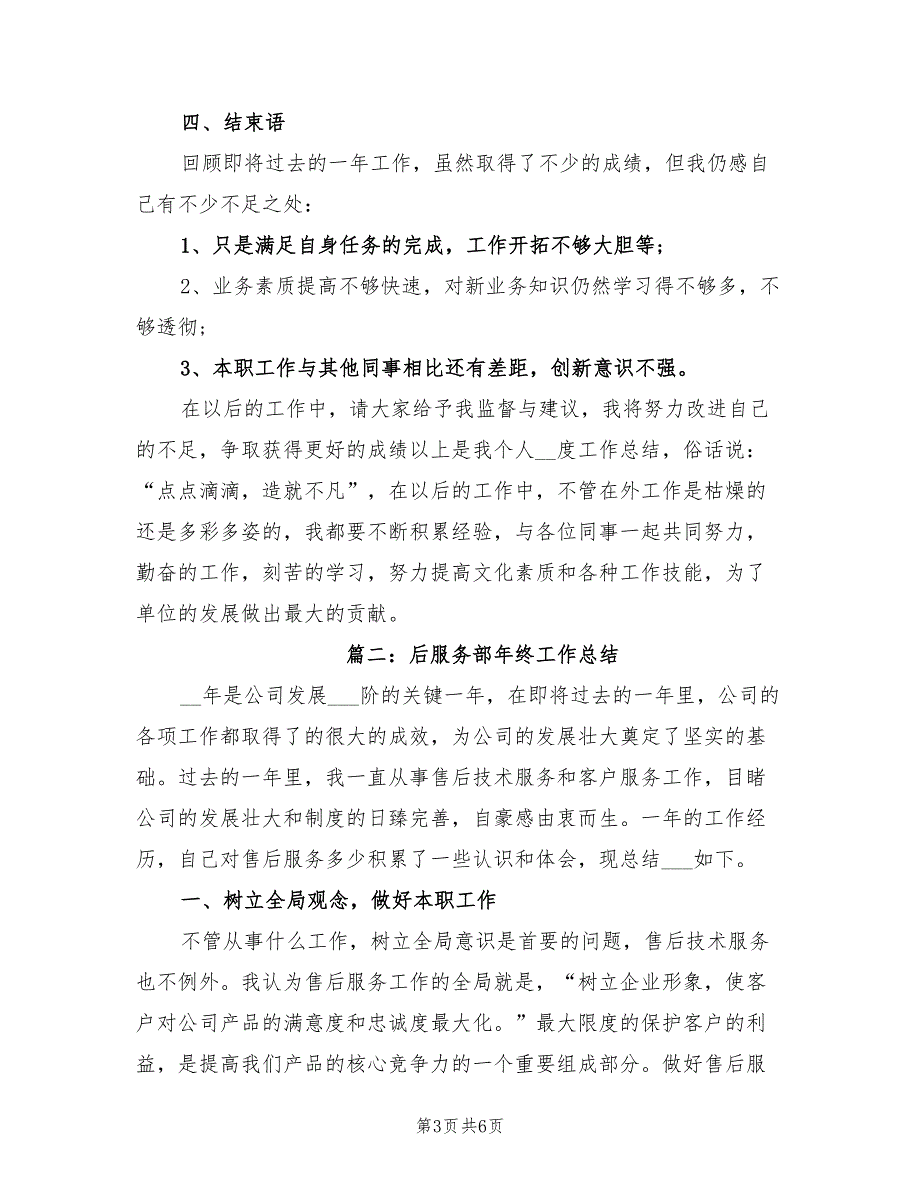 四、结束语
回顾即将过去的一年工作，虽然取得了不少的成绩，但我仍感自
己有不少不足之处：
1、只是满足自身任务的完成，工作开拓不够大胆等;
2、业务素质提高不够快速，对新业务知识仍然学习得不够多，不
够透彻;
3、本职工作与其他同事相比还有差距，创新意识不强。
在以后的工作中，请大家给予我监督与建议，我将努力改进自己
的不足，争取获得更好的成绩以上是我个人__度工作总结，俗话说：
“点点滴滴，造就不凡”，在以后的工作中，不管在外工作是枯燥的
还是多彩多姿的，我都要不断积累经验，与各位同事一起共同努力，
勤奋的工作，刻苦的学习，努力提高文化素质和各种工作技能，为了
单位的发展做出最大的贡献。
篇二：后服务部年终工作总结
__年是公司发展___阶的关键一年，在即将过去的一年里，公司的
各项工作都取得了的很大的成效，为公司的发展壮大奠定了坚实的基
础。过去的一年里，我一直从事售后技术服务和客户服务工作，目睹
公司的发展壮大和制度的日臻完善，自豪感由衷而生。一年的工作经
历，自己对售后服务多少积累了一些认识和体会，现总结___如下。
一、树立全局观念，做好本职工作
不管从事什么工作，树立全局意识是首要的问题，售后技术服务
也不例外。我认为售后服务工作的全局就是，“树立企业形象，使客
户对公司产品的满意度和忠诚度最大化。”最大限度的保护客户的利
益，是提高我们产品的核心竞争力的一个重要组成部分。做好售后服
第3页共6页